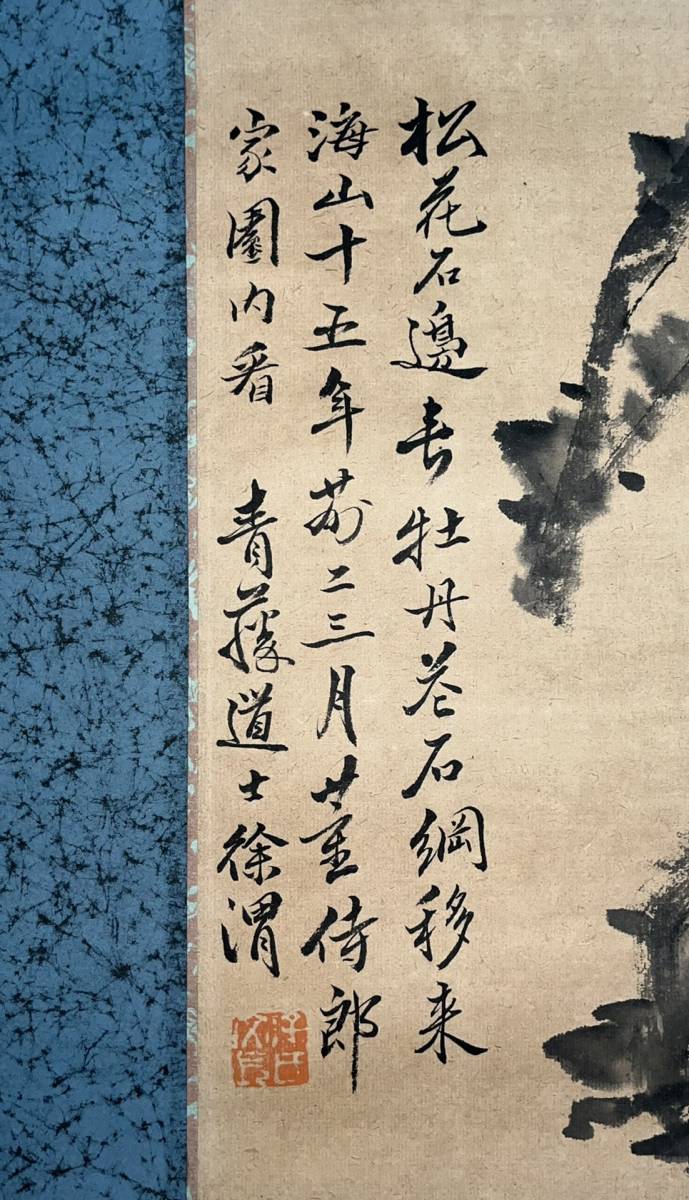 松花石邊春牡丹花石綱移来
海山十五年前二三月董侍郎
家園内看 青藤道士徐渭